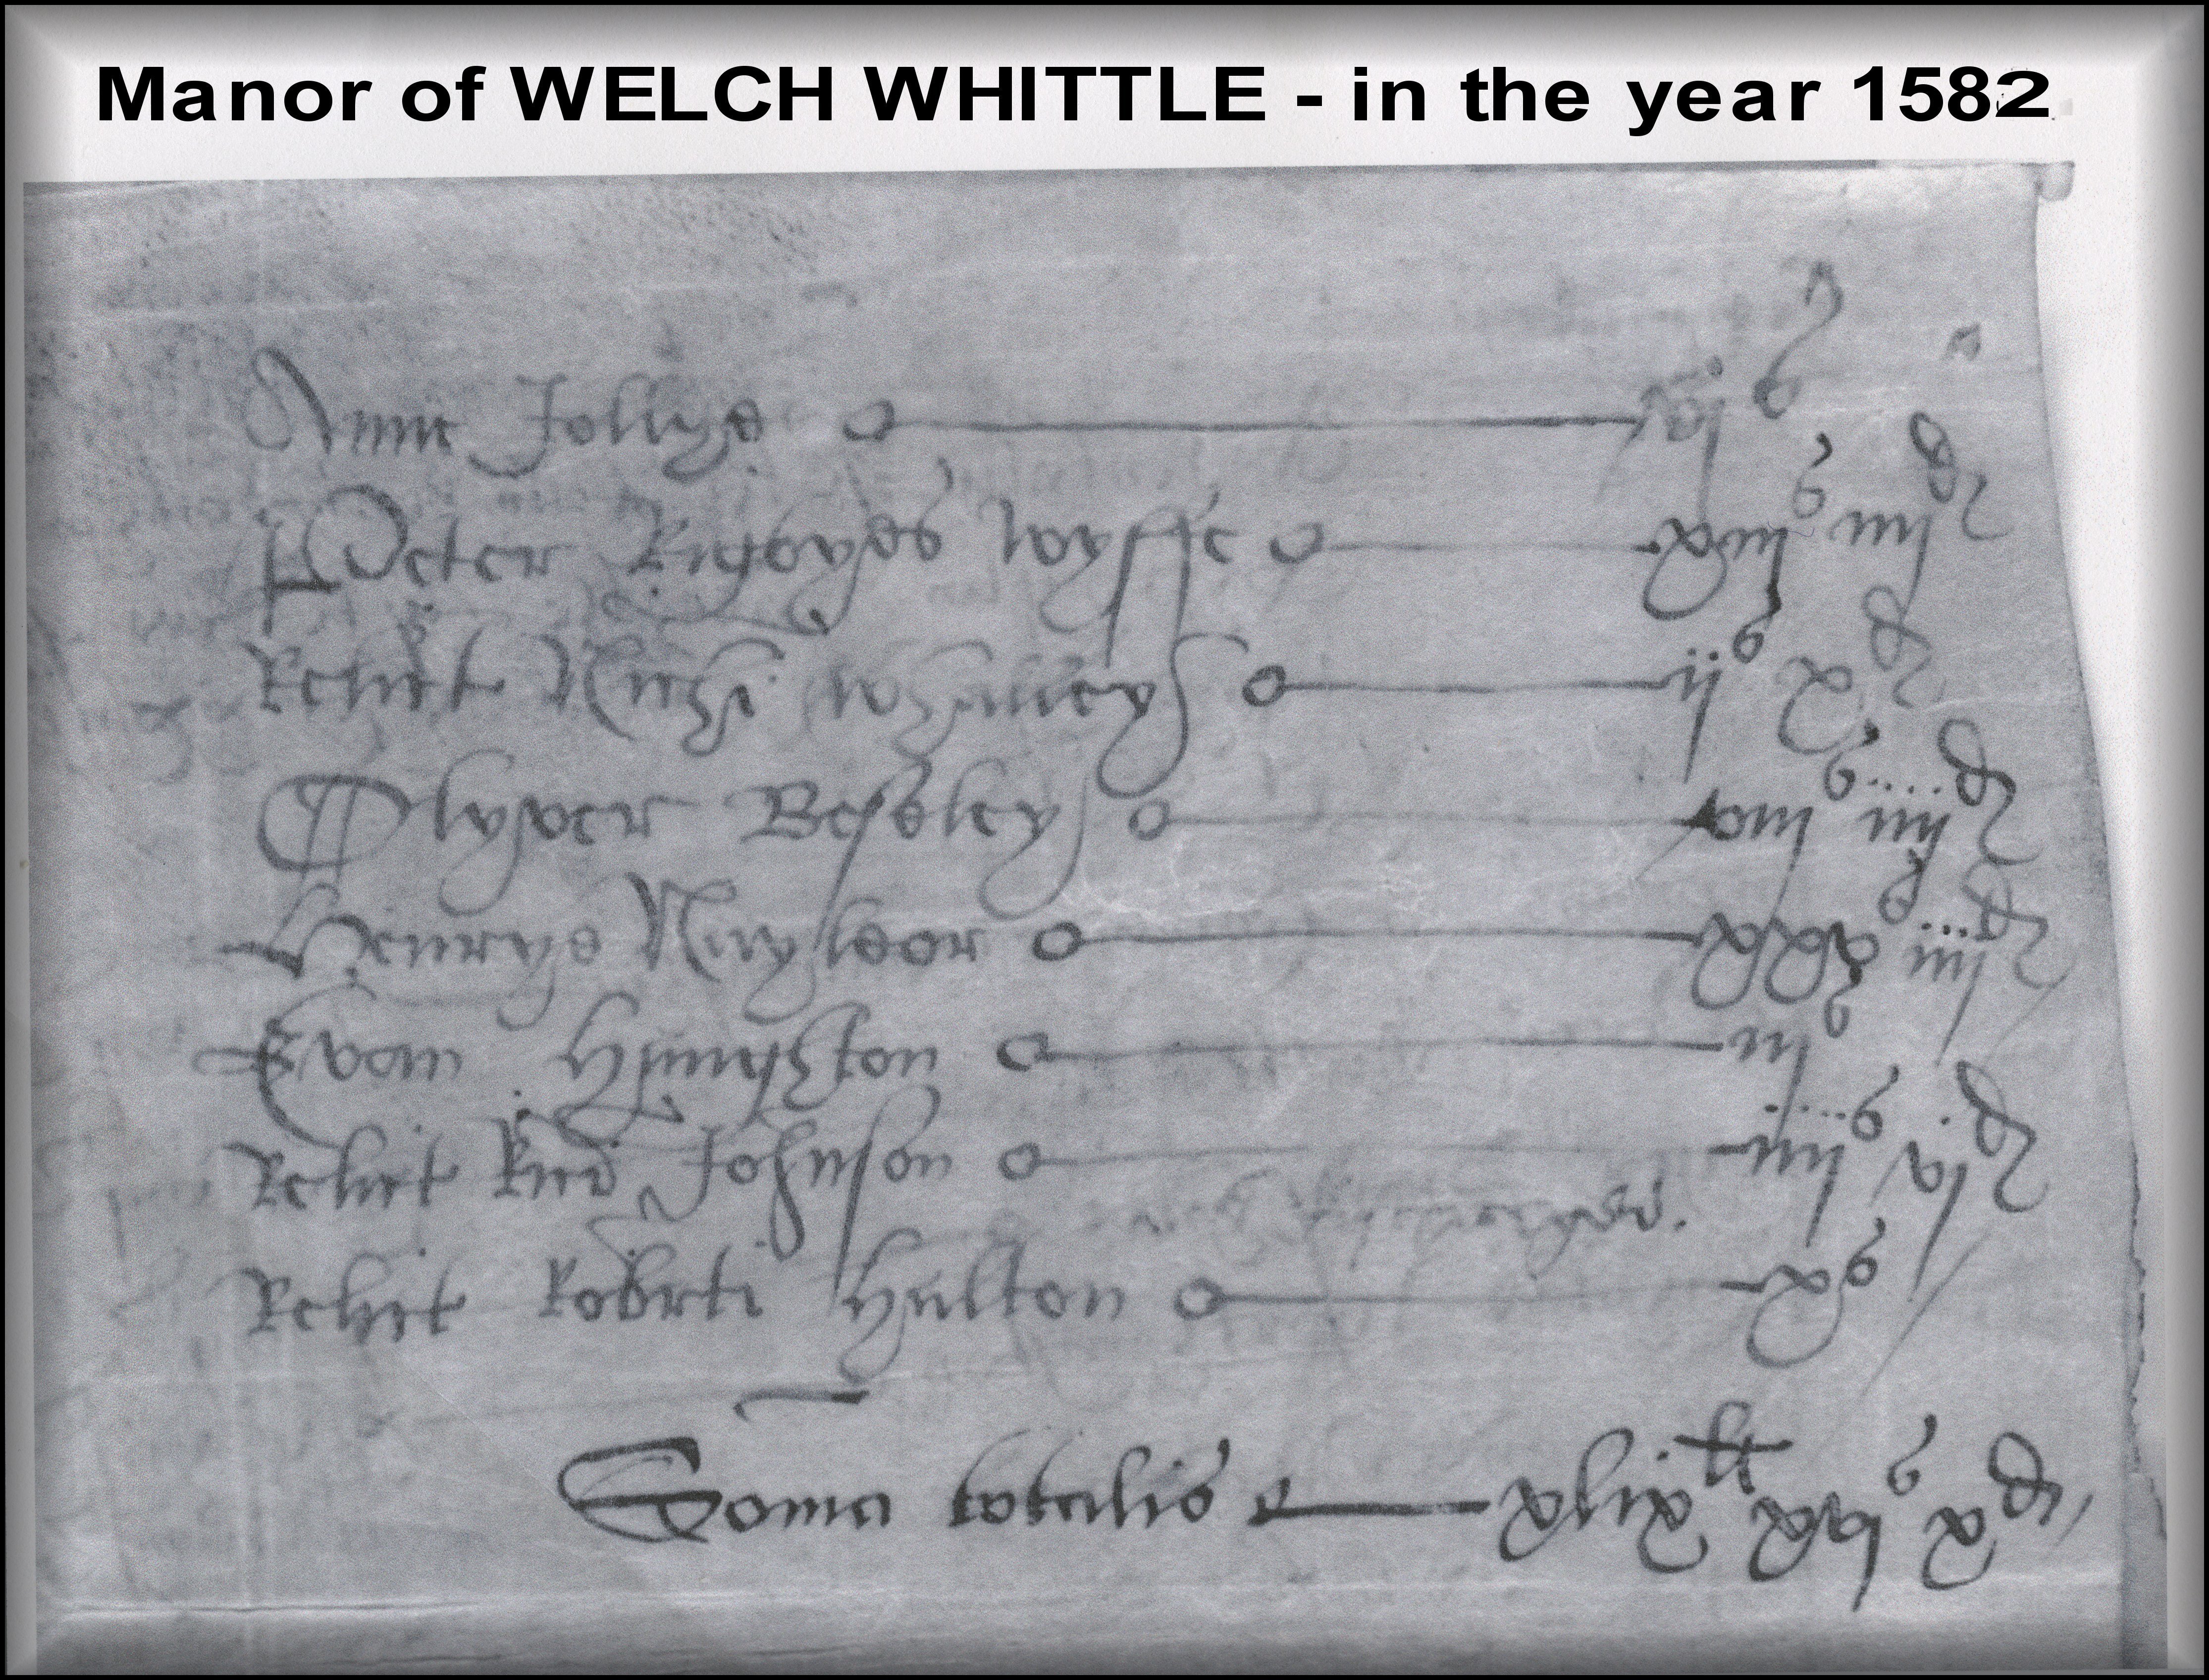 Manor of WELCH WHITTLE - in the year 1582
Anne Jollye vjs
Peter Rigbyes wyffe xiijs iiijd
Relict Nichi Whalley ijs xd
Olyver Beseley viijs iiijd
Henrye Nayleor xxxs iiijd
Evan Haughton iijs
Relict Ricd Johnson iiijs vjd
Relict Robrti Hulton xs
Soma totalis xlixli xvjs xd